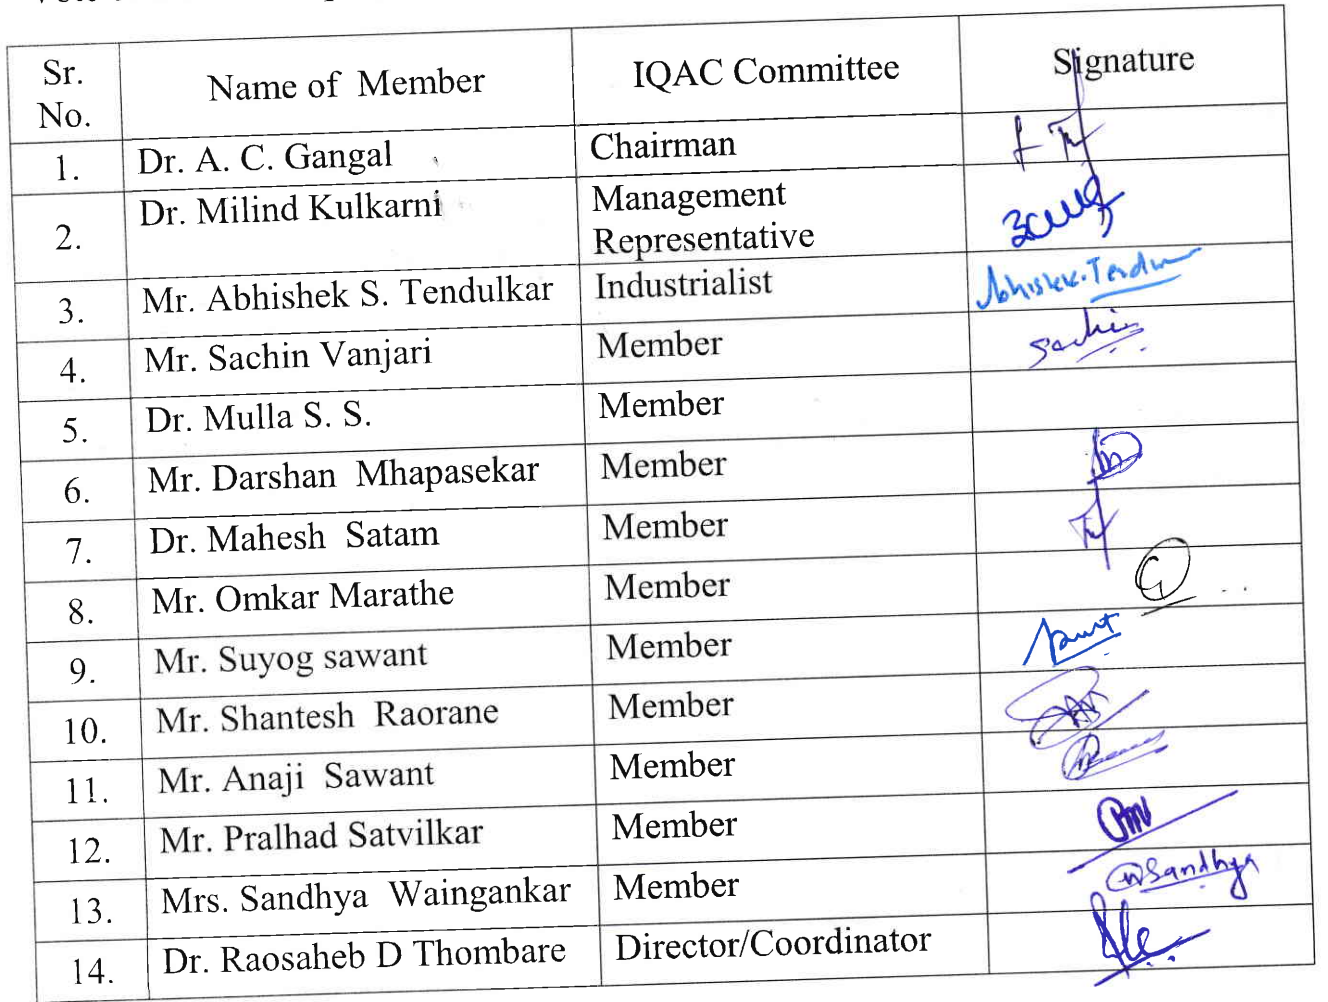 Sr. No. Name of Member IQAC Committee Signature
1. Dr. A. C. Gangal Chairman
2. Dr. Milind Kulkarni Management Representative
3. Mr. Abhishek S. Tendulkar Industrialist Abhishek.
4. Mr. Sachin Vanjari Member Sachin
5. Dr. Mulla S. S. Member
6. Mr. Darshan Mhapasekar Member
7. Dr. Mahesh Satam Member
8. Mr. Omkar Marathe Member
9. Mr. Suyog sawant Member
10. Mr. Shantesh Raorane Member
11. Mr. Anaji Sawant Member
12. Mr. Pralhad Satvilkar Member
13. Mrs. Sandhya Waingankar Member Sandhya
14. Dr. Raosaheb D Thombare Director/Coordinator